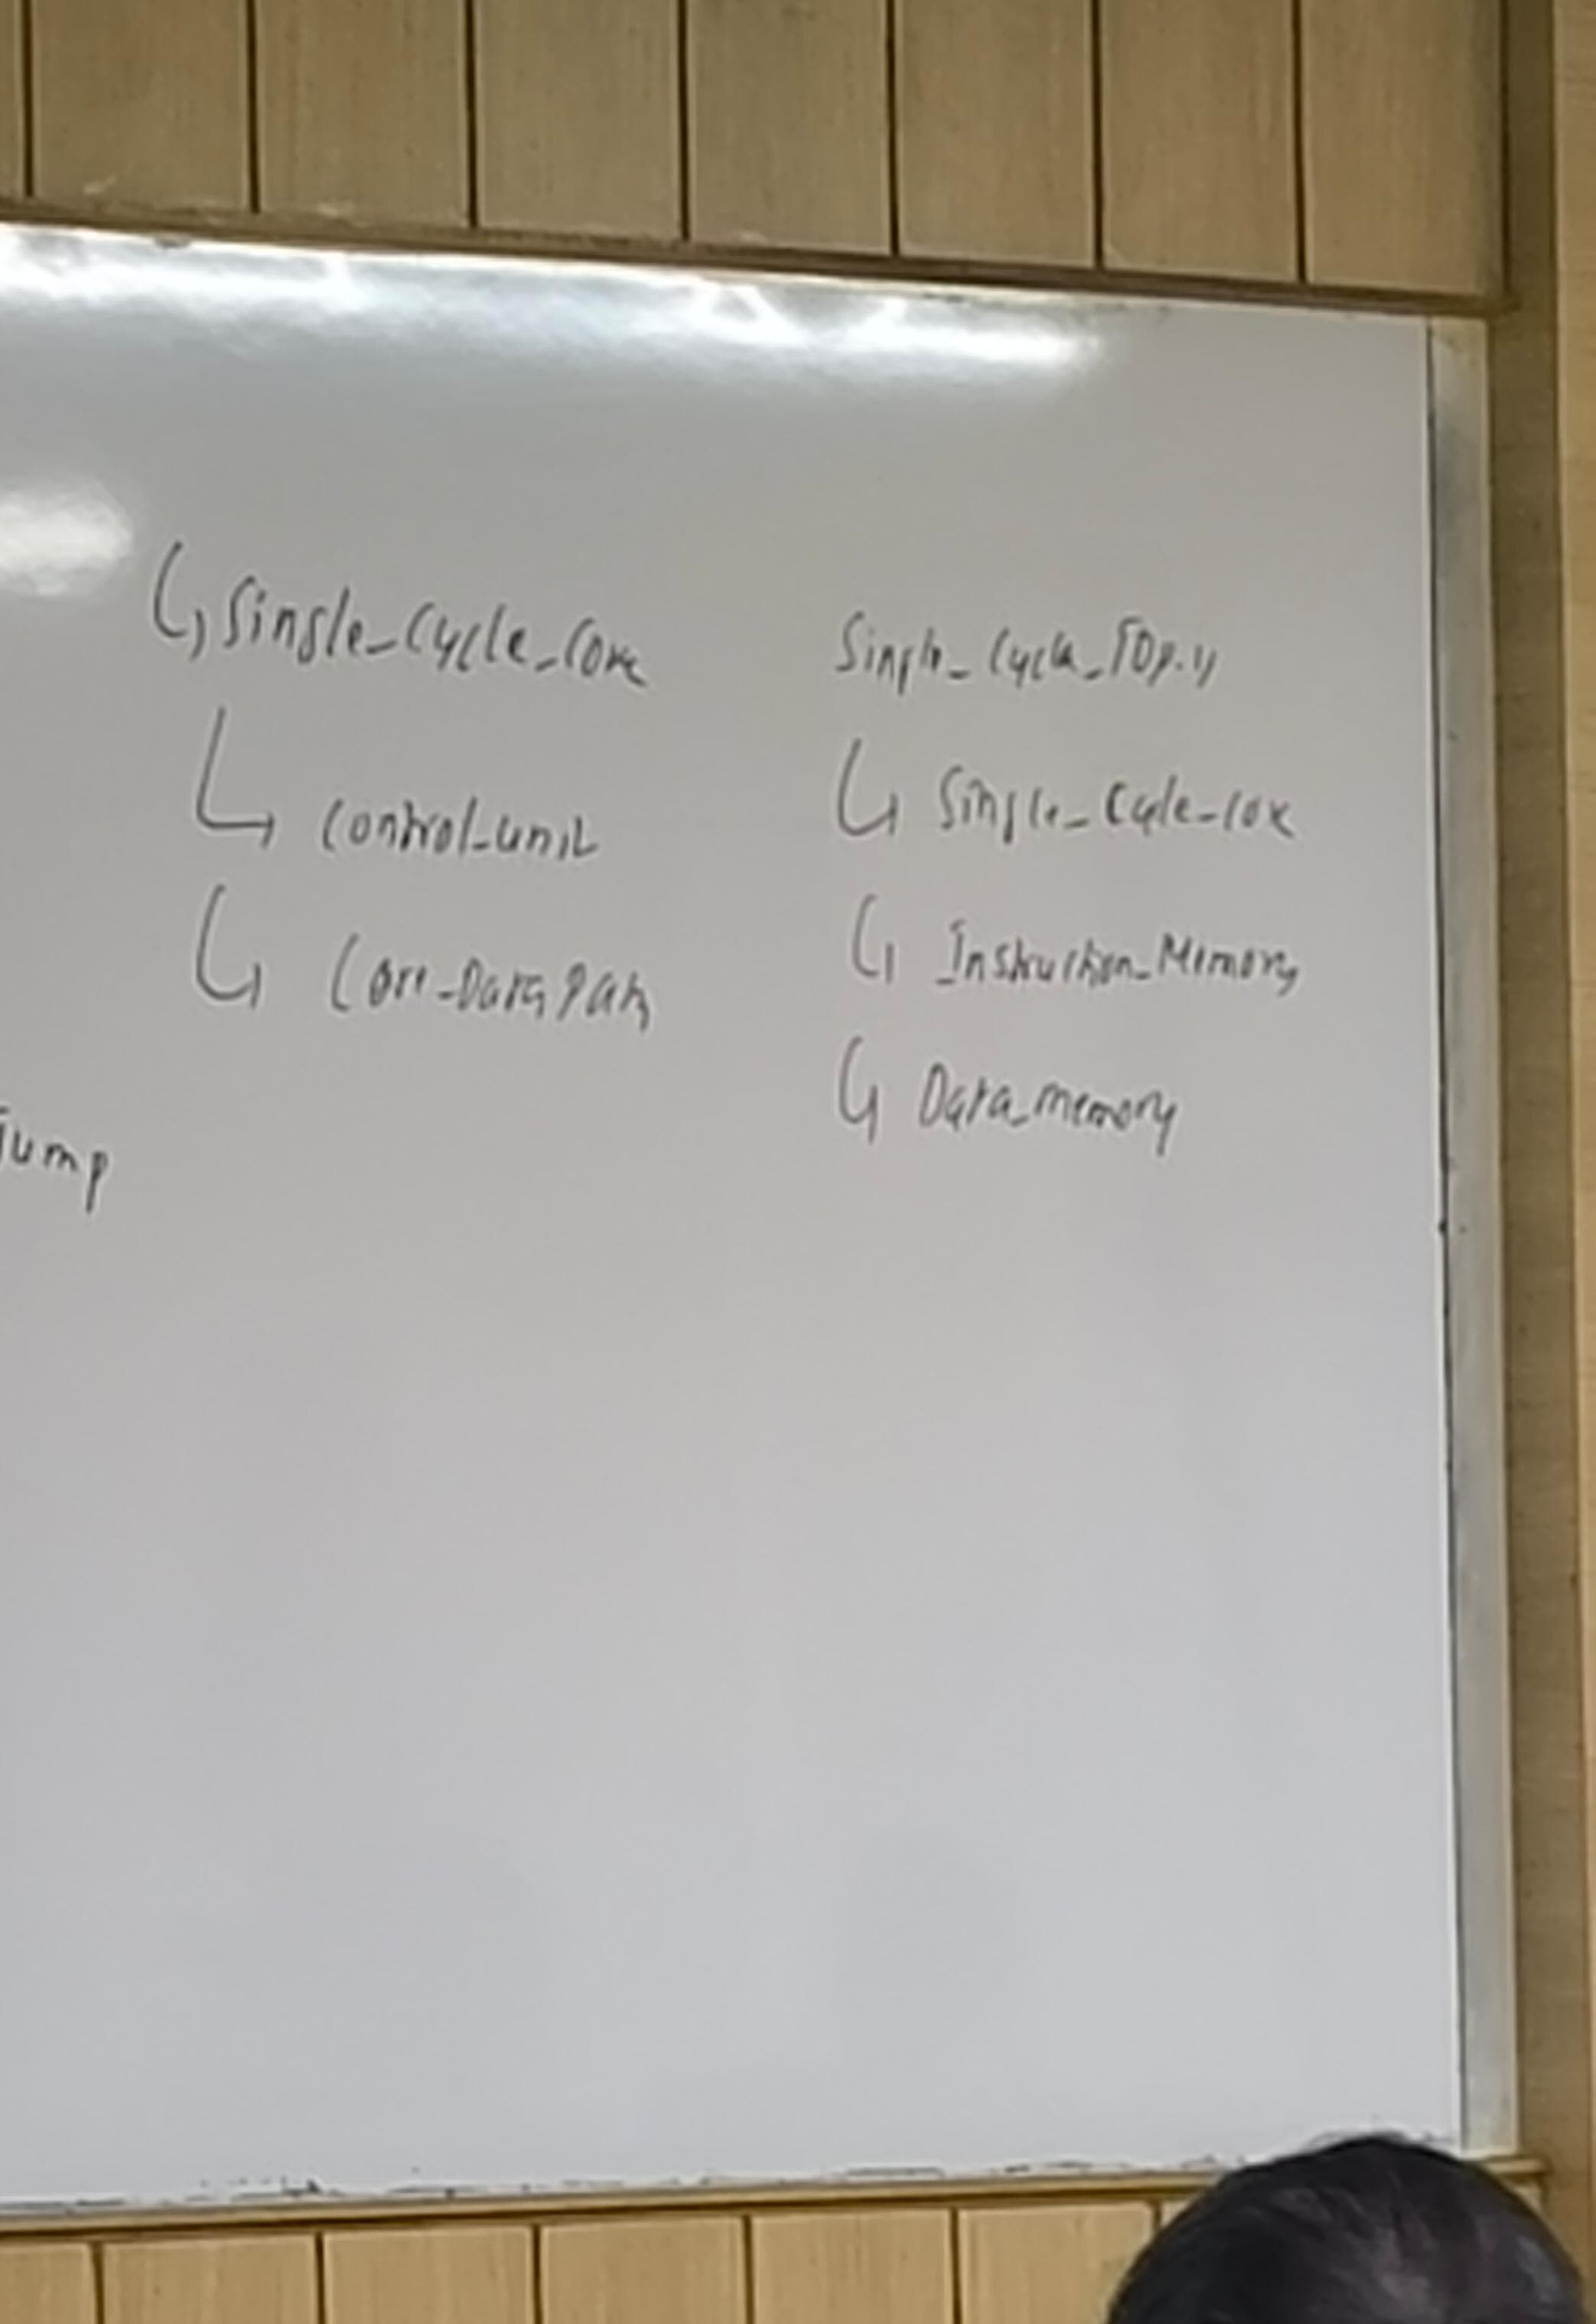 ↳ Single_Cycle_Core
↳ Control_unit
↳ Core_DataPath
Jump
Single_Cycle_Top.v
↳ Single_Cycle_Core
↳ Instruction_Memory
↳ Data_memory